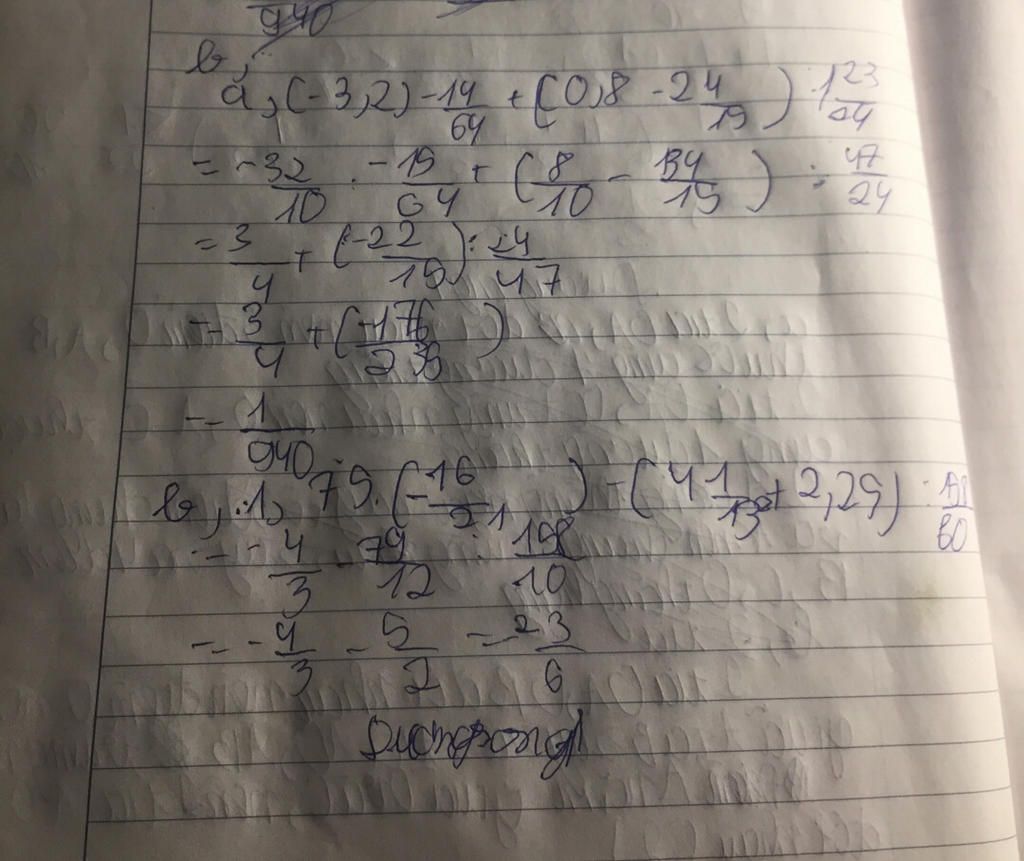 940
b,
a, (-3,2) -14/64 + (0,8 - 24/15) : 1 23/24
= -32/10 . -15/64 + (8/10 - 34/15) : 47/24
= 3/4 + (-22/15) : 24/47
= 3/4 + (-176/235)
= 1/940
b, .1, 75. (-16/21) - (4 1/13 + 2,25) :
= -4/3 - 79/12 : 158/10
= -4/3 - 5/2 = -23/6